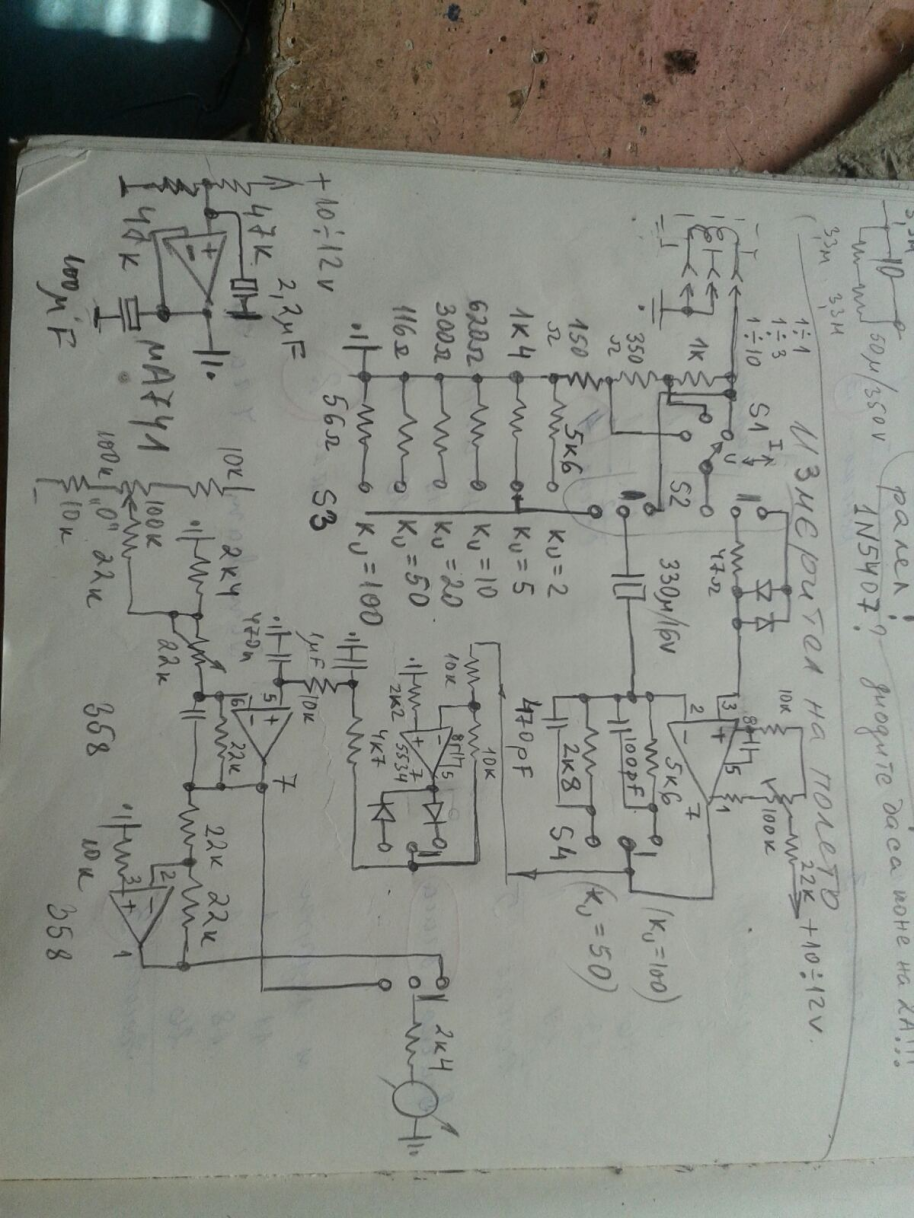 3,3м
10
3,3м 3,3м
50μ/350V
ралеи!
1N5407? диодите да са поне на 2А!!!
Измерител на полето
1÷1
1÷3
1÷10
S1
I
U
S2
1K
350
Ω
150
Ω
1K4
620Ω
300Ω
116Ω
56Ω
5K6
S3
KU=2
KU=5
KU=10
KU=20
KU=50
KU=100
47Ω
330μ/16V
10K
100K
22K +10÷12V.
3
8
5
1
2
7
5K6
100pF
2K8
470pF
S4
(KU=100)
(KU=50)
10K
10K
5534
2K2
4K7
1μF
10K
470n
5
6
7
22K
22K
2K4
22K
10K
100K
100K
"0"
10K
358
22K
22K
10K
3
2
1
358
2K4
+10÷12V
47K
2,2μF
47K
100μF
μA741